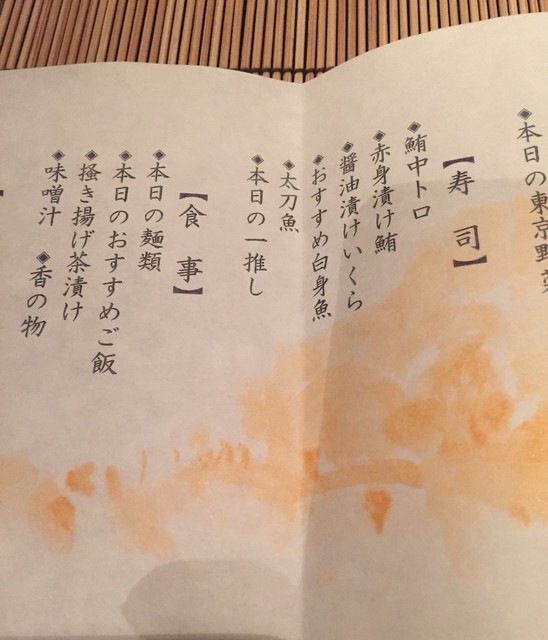 ◆本日の東京野菜
【寿司】
◆鮪中トロ
◆赤身漬け鮪
◆醤油漬けいくら
◆おすすめ白身魚
◆太刀魚
◆本日の一推し
【食事】
◆本日の麺類
◆本日のおすすめご飯
◆掻き揚げ茶漬け
◆味噌汁 ◆香の物